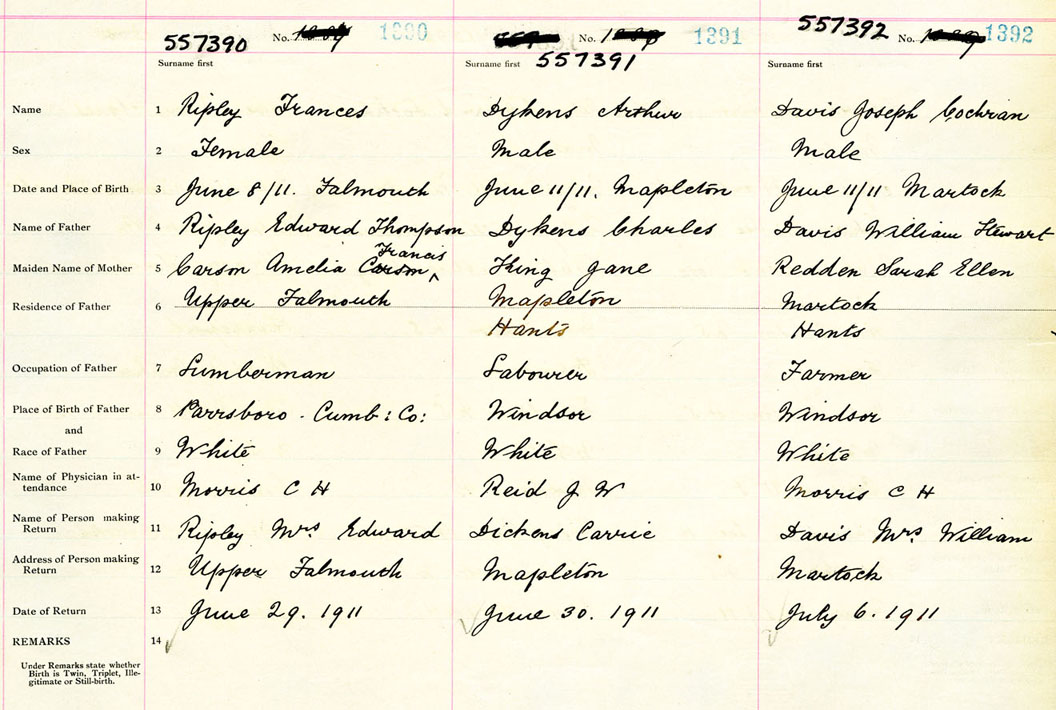 557390 No. 1390 No. 1391 557392 No. 1392
Surname first Surname first 557391 Surname first
Name 1 Ripley Frances Dykens Arthur Davis Joseph Cochran
Sex 2 Female Male Male
Date and Place of Birth 3 June 8/11. Falmouth June 11/11. Mapleton June 11/11 Martock
Name of Father 4 Ripley Edward Thompson Dykens Charles Davis William Stewart
Francis
Maiden Name of Mother 5 Carson Amelia Carson ^ King Jane Redden Sarah Ellen
Residence of Father 6 Upper Falmouth Mapleton Martock
Hants Hants
Occupation of Father 7 Lumberman Labourer Farmer
Place of Birth of Father 8 Parrsboro - Cumb: Co: Windsor Windsor
and
Race of Father 9 White White White
Name of Physician in at-
tendance 10 Morris C H Reid J W Morris C H
Name of Person making
Return 11 Ripley Mrs Edward Dickens Carrie Davis Mrs William
Address of Person making
Return 12 Upper Falmouth Mapleton Martock
Date of Return 13 June 29. 1911 June 30. 1911 July 6. 1911
REMARKS 14
Under Remarks state whether
Birth is Twin, Triplet, Ille-
gitimate or Still-birth.